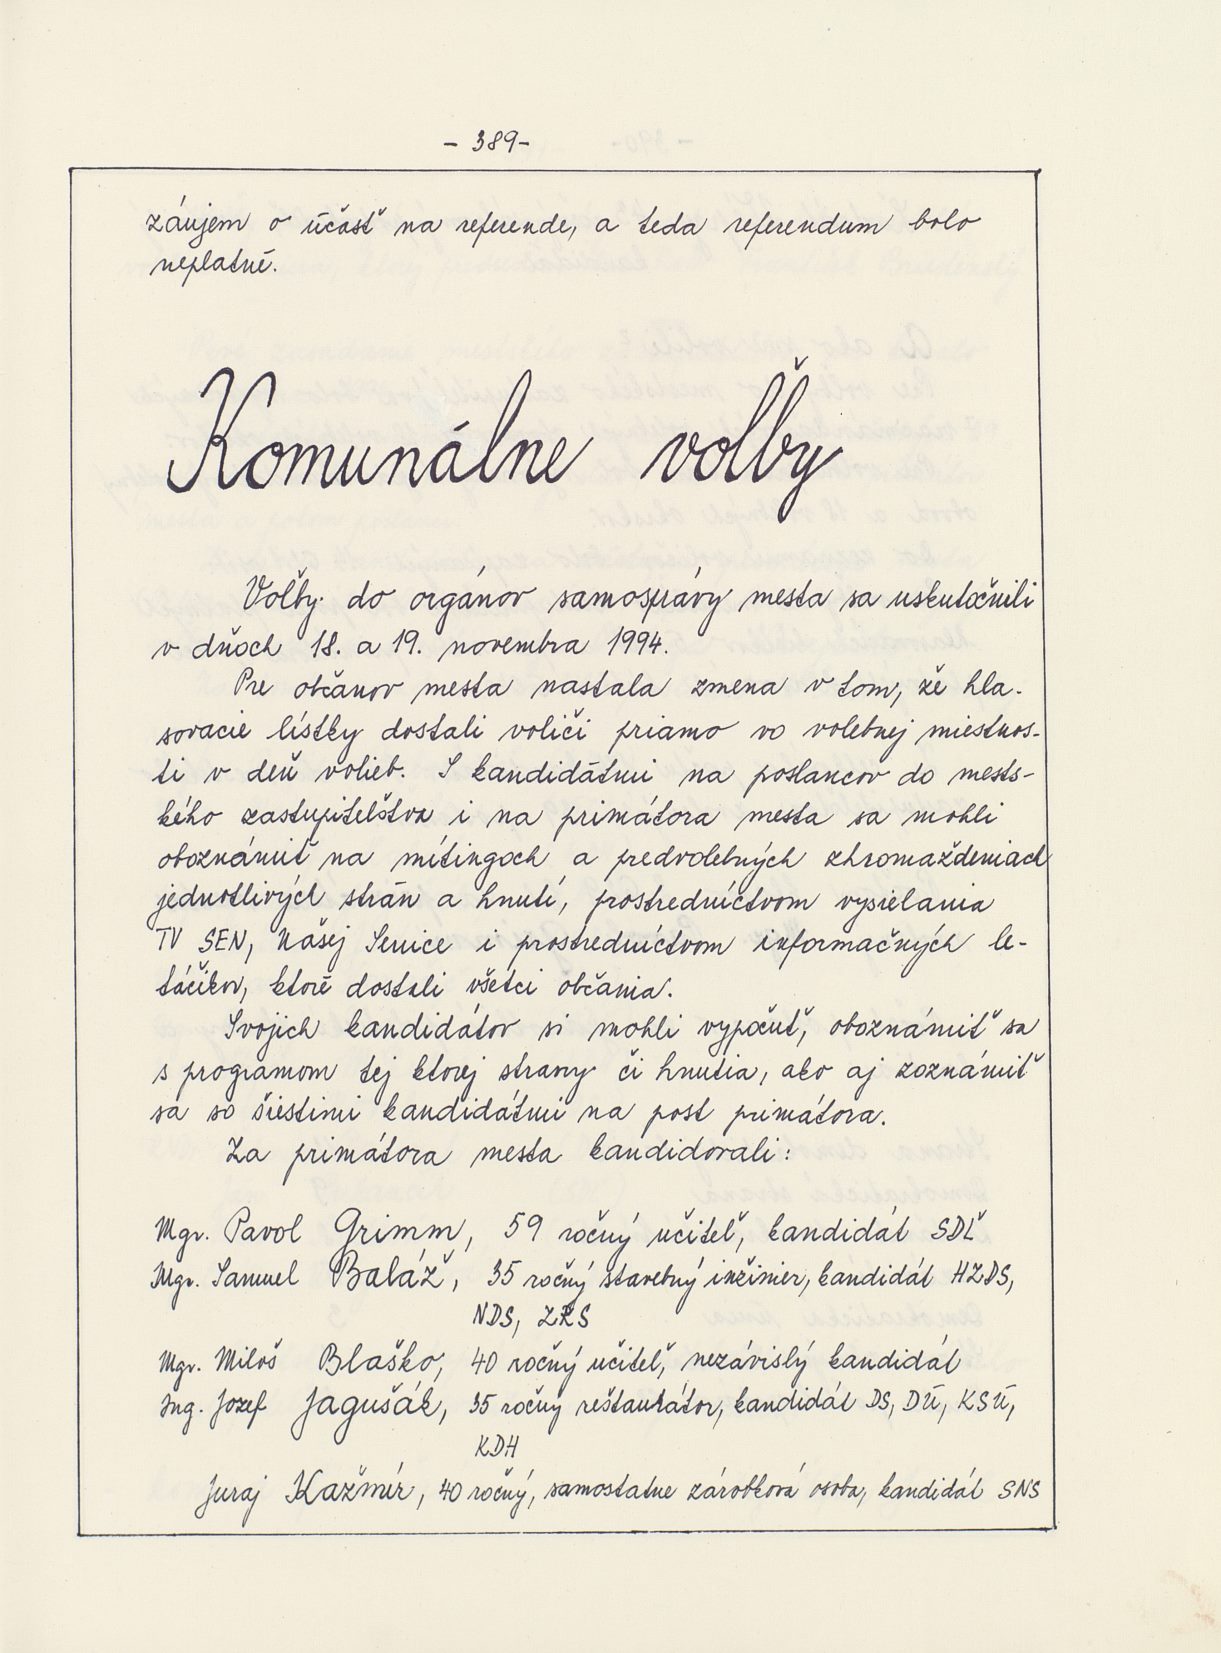 - 389-
záujem o účasť na referende, a teda referendum bolo
neplatné.
Komunálne voľby
Voľby do orgánov samosprávy mesta sa uskutočnili
v dňoch 18. a 19. novembra 1994.
Pre občanov mesta nastala zmena v tom, že hla-
sovacie lístky dostali voliči priamo vo volebnej miestnos-
ti v deň volieb. S kandidátmi na poslancov do mests-
kého zastupiteľstva i na primátora mesta sa mohli
oboznámiť na mítingoch a predvolebných zhromaždeniach
jednotlivých strán a hnutí, prostredníctvom vysielania
TV SEN, Našej Senice i prostredníctvom informačných le-
táčikov, ktoré dostali všetci občania.
Svojich kandidátov si mohli vypočuť, oboznámiť sa
s programom tej ktorej strany či hnutia, ako aj zoznámiť
sa so šiestimi kandidátmi na post primátora.
Za primátora mesta kandidovali:
Mgr. Pavol Grimm, 59 ročný učiteľ, kandidát SDĽ
Mgr. Samuel Baláž, 35 ročný stavebný inžinier, kandidát HZDS,
NDS, ZRS
Mgr. Miloš Blaško, 40 ročný učiteľ, nezávislý kandidát
Ing. Jozef Jagušák, 35 ročný reštaurátor, kandidát DS, DÚ, KSÚ,
KDH
Juraj Kažmír, 40 ročný, samostatne zárobková osoba, kandidát SNS